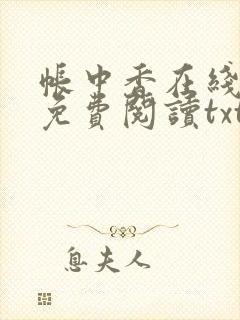 帳中香在綫
免費閱讀txt
息夫人